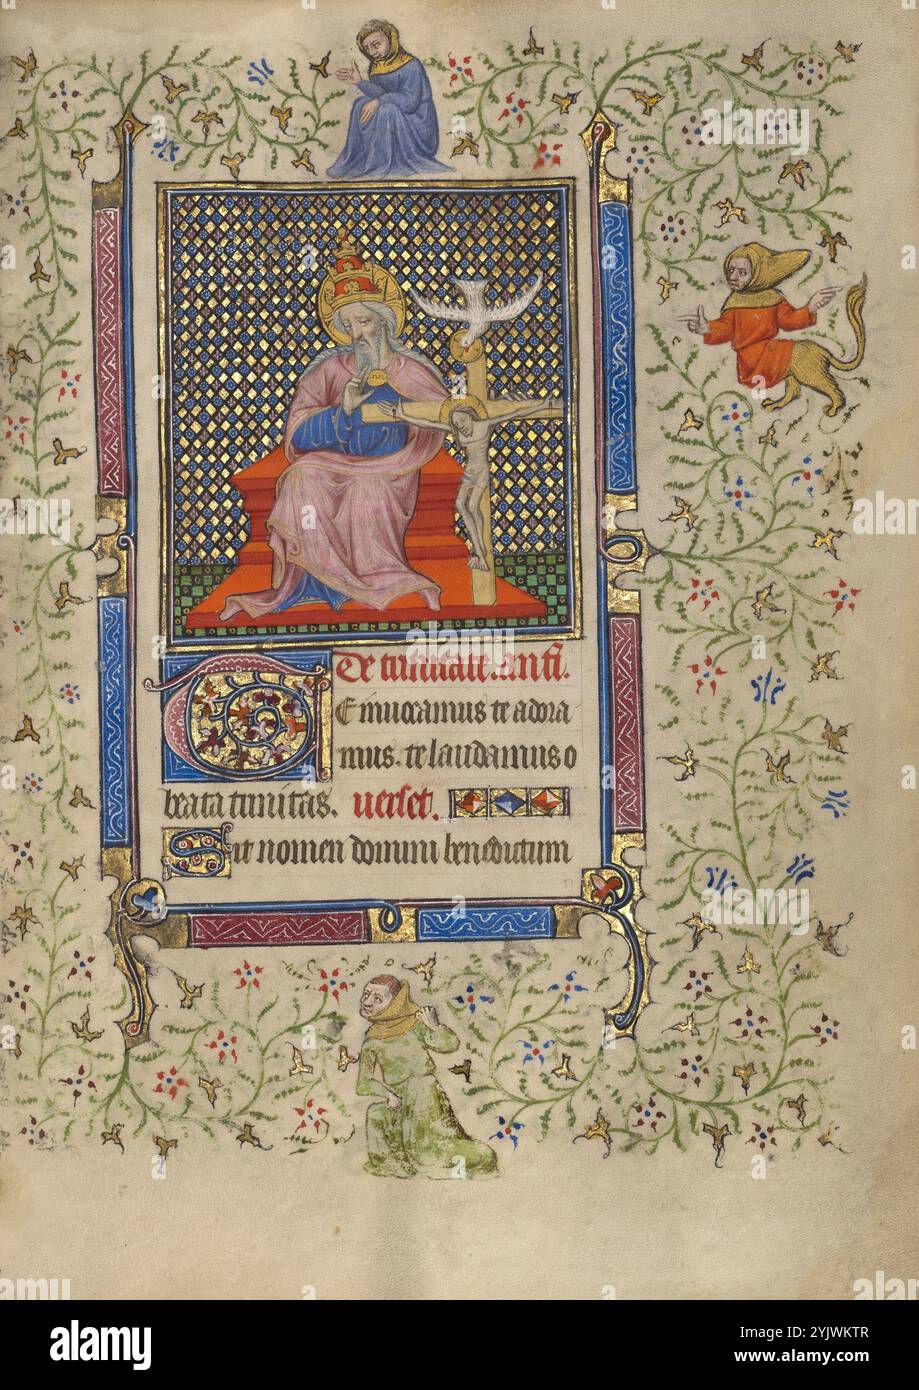 De trinitate. Anti.
Te invocamus te adora
mus. te laudamus o
beata trinitas. verset.
Sit nomen domini benedictum
alamy
Image ID: 2YJWKTR
www.alamy.com